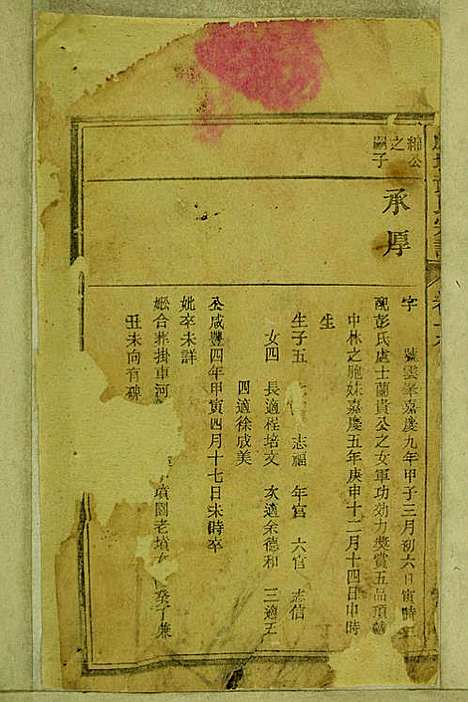 綿公
之
嗣子
承厚
字 號雲峯嘉慶九年甲子三月初六日寅時生
配彭氏處士蘭貴公之女軍功効力奬賞五品頂戴
中林之胞妹嘉慶五年庚申十二月十四日申時
生
生子五 志福 年官 六官 志信
女四 長適程培文 次適余德和 三適王
四適徐成美
公咸豐四年甲寅四月十七日未時卒
妣卒未詳
嫗合葬掛車河 墳園老墳 癸丁兼
丑未向有碑